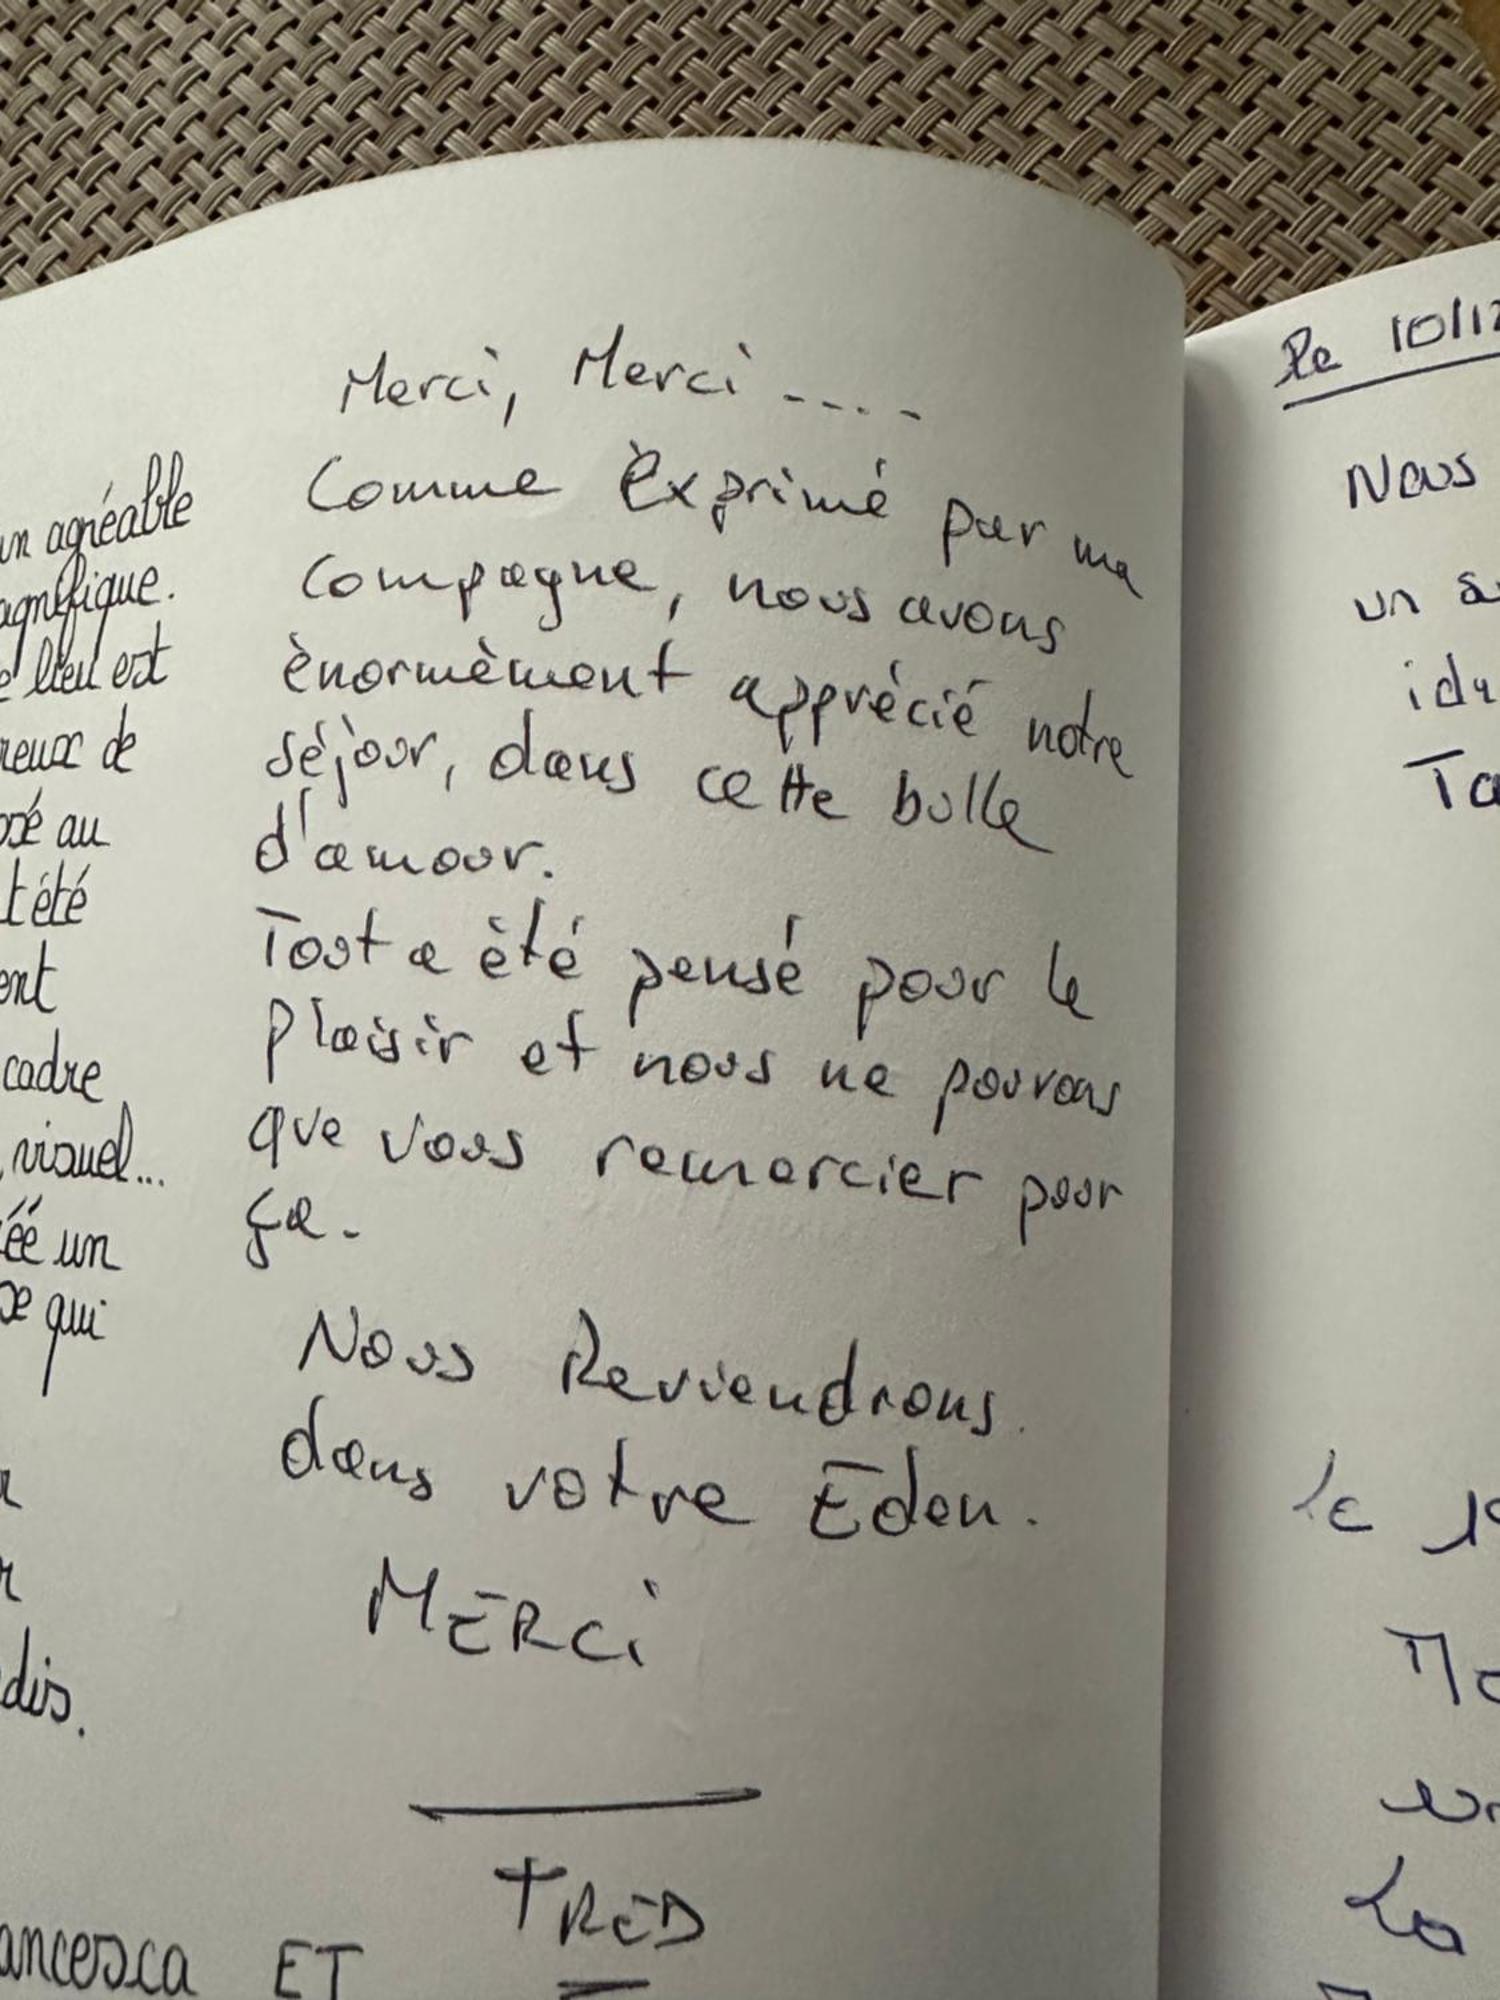 un agréable
agnifique.
e lieu est
reux de
osé au
t été
ent
cadre
, visuel...
éé un
ce qui
dis.
ancesca ET
Merci, Merci .....
Comme Exprimé par ma
Compagne, nous avons
ènormèment apprécié notre
séjour, dans cette bulle
d'amour.
Tout a èté pensé pour le
plaisir et nous ne pouvons
que vous remercier pour
ça.
Nous Reviendrons
dans votre Eden.
MERCi
FRED
Le 10/12
Nous
un
Ta
le
La